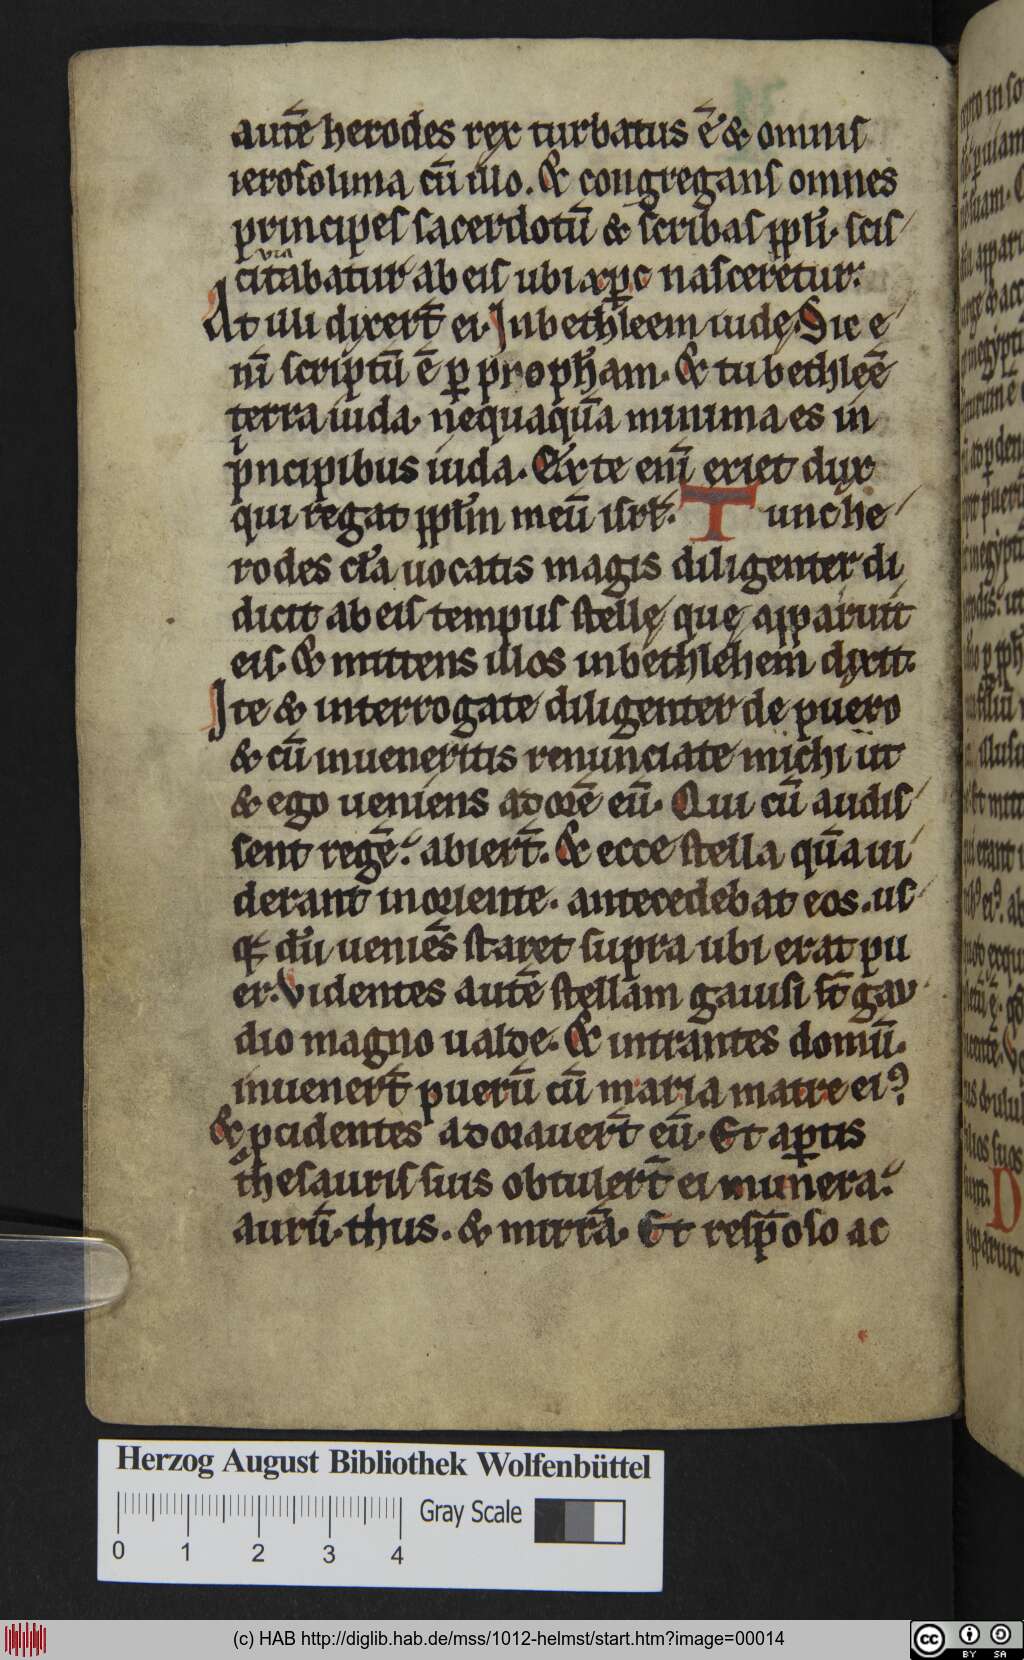 autē herodes rex turbatus ē & omnis
ierosolima cū illo. & congregans omnes
principes sacerdotū & scribas ppli. scis
citabatur ab eis ubi xpc nasceretur.
At illi dixert̄ ei. In bethleem iudę. Sic e
ni̅ scriptū ē p̱ proph̄am. & tu bethleē
terra iuda. nequaquā minima es in
pͥncipibus iuda. Ex te eni̅ exiet dux
qui regat pplm meū isrl. Tunc he
rodes cla̅ uocatis magis diligenter di
dicit ab eis tempus stellę que apparuit
eis. & mittens illos in bethlehem dixit.
Ite & interrogate diligenter de puero
& cū inueneritis renunciate michi ut
& ego ueniens adorē eū. Qui cū audis
sent regē. abiert̄. & ecce stella quā ui
derant in oriente. antecedebat eos. us
q; du̅ ueniēs staret supra ubi erat pu
er. Videntes autē stellam gauisi st̄ gau
dio magno ualde. & intrantes domū.
inuenert̄ puerū cū maria matre eiꝰ
& pcidentes adorauert̄ eū. Et ap̱tis
thesauris suis obtulert̄ ei munera.
aurū. thus. & mirrā. Et respōso ac
Herzog August Bibliothek Wolfenbüttel
Gray Scale
0 1 2 3 4
(c) HAB http://diglib.hab.de/mss/1012-helmst/start.htm?image=00014
cc BY SA